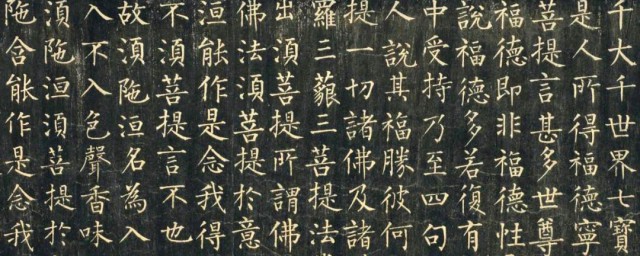 千大千世界七寶
是人所得福德寧
菩提言甚多世尊
福德即非福德性
說福德多若復有
中受持乃至四句
人說其福勝彼何
提一切諸佛及諸
羅三藐三菩提法
出須菩提所謂佛
佛法須菩提於意
洹能作是念我得
不須菩提言不也
故須陁洹名為入
入不入色聲香味
須陁洹須菩提於
陁含能作是念我